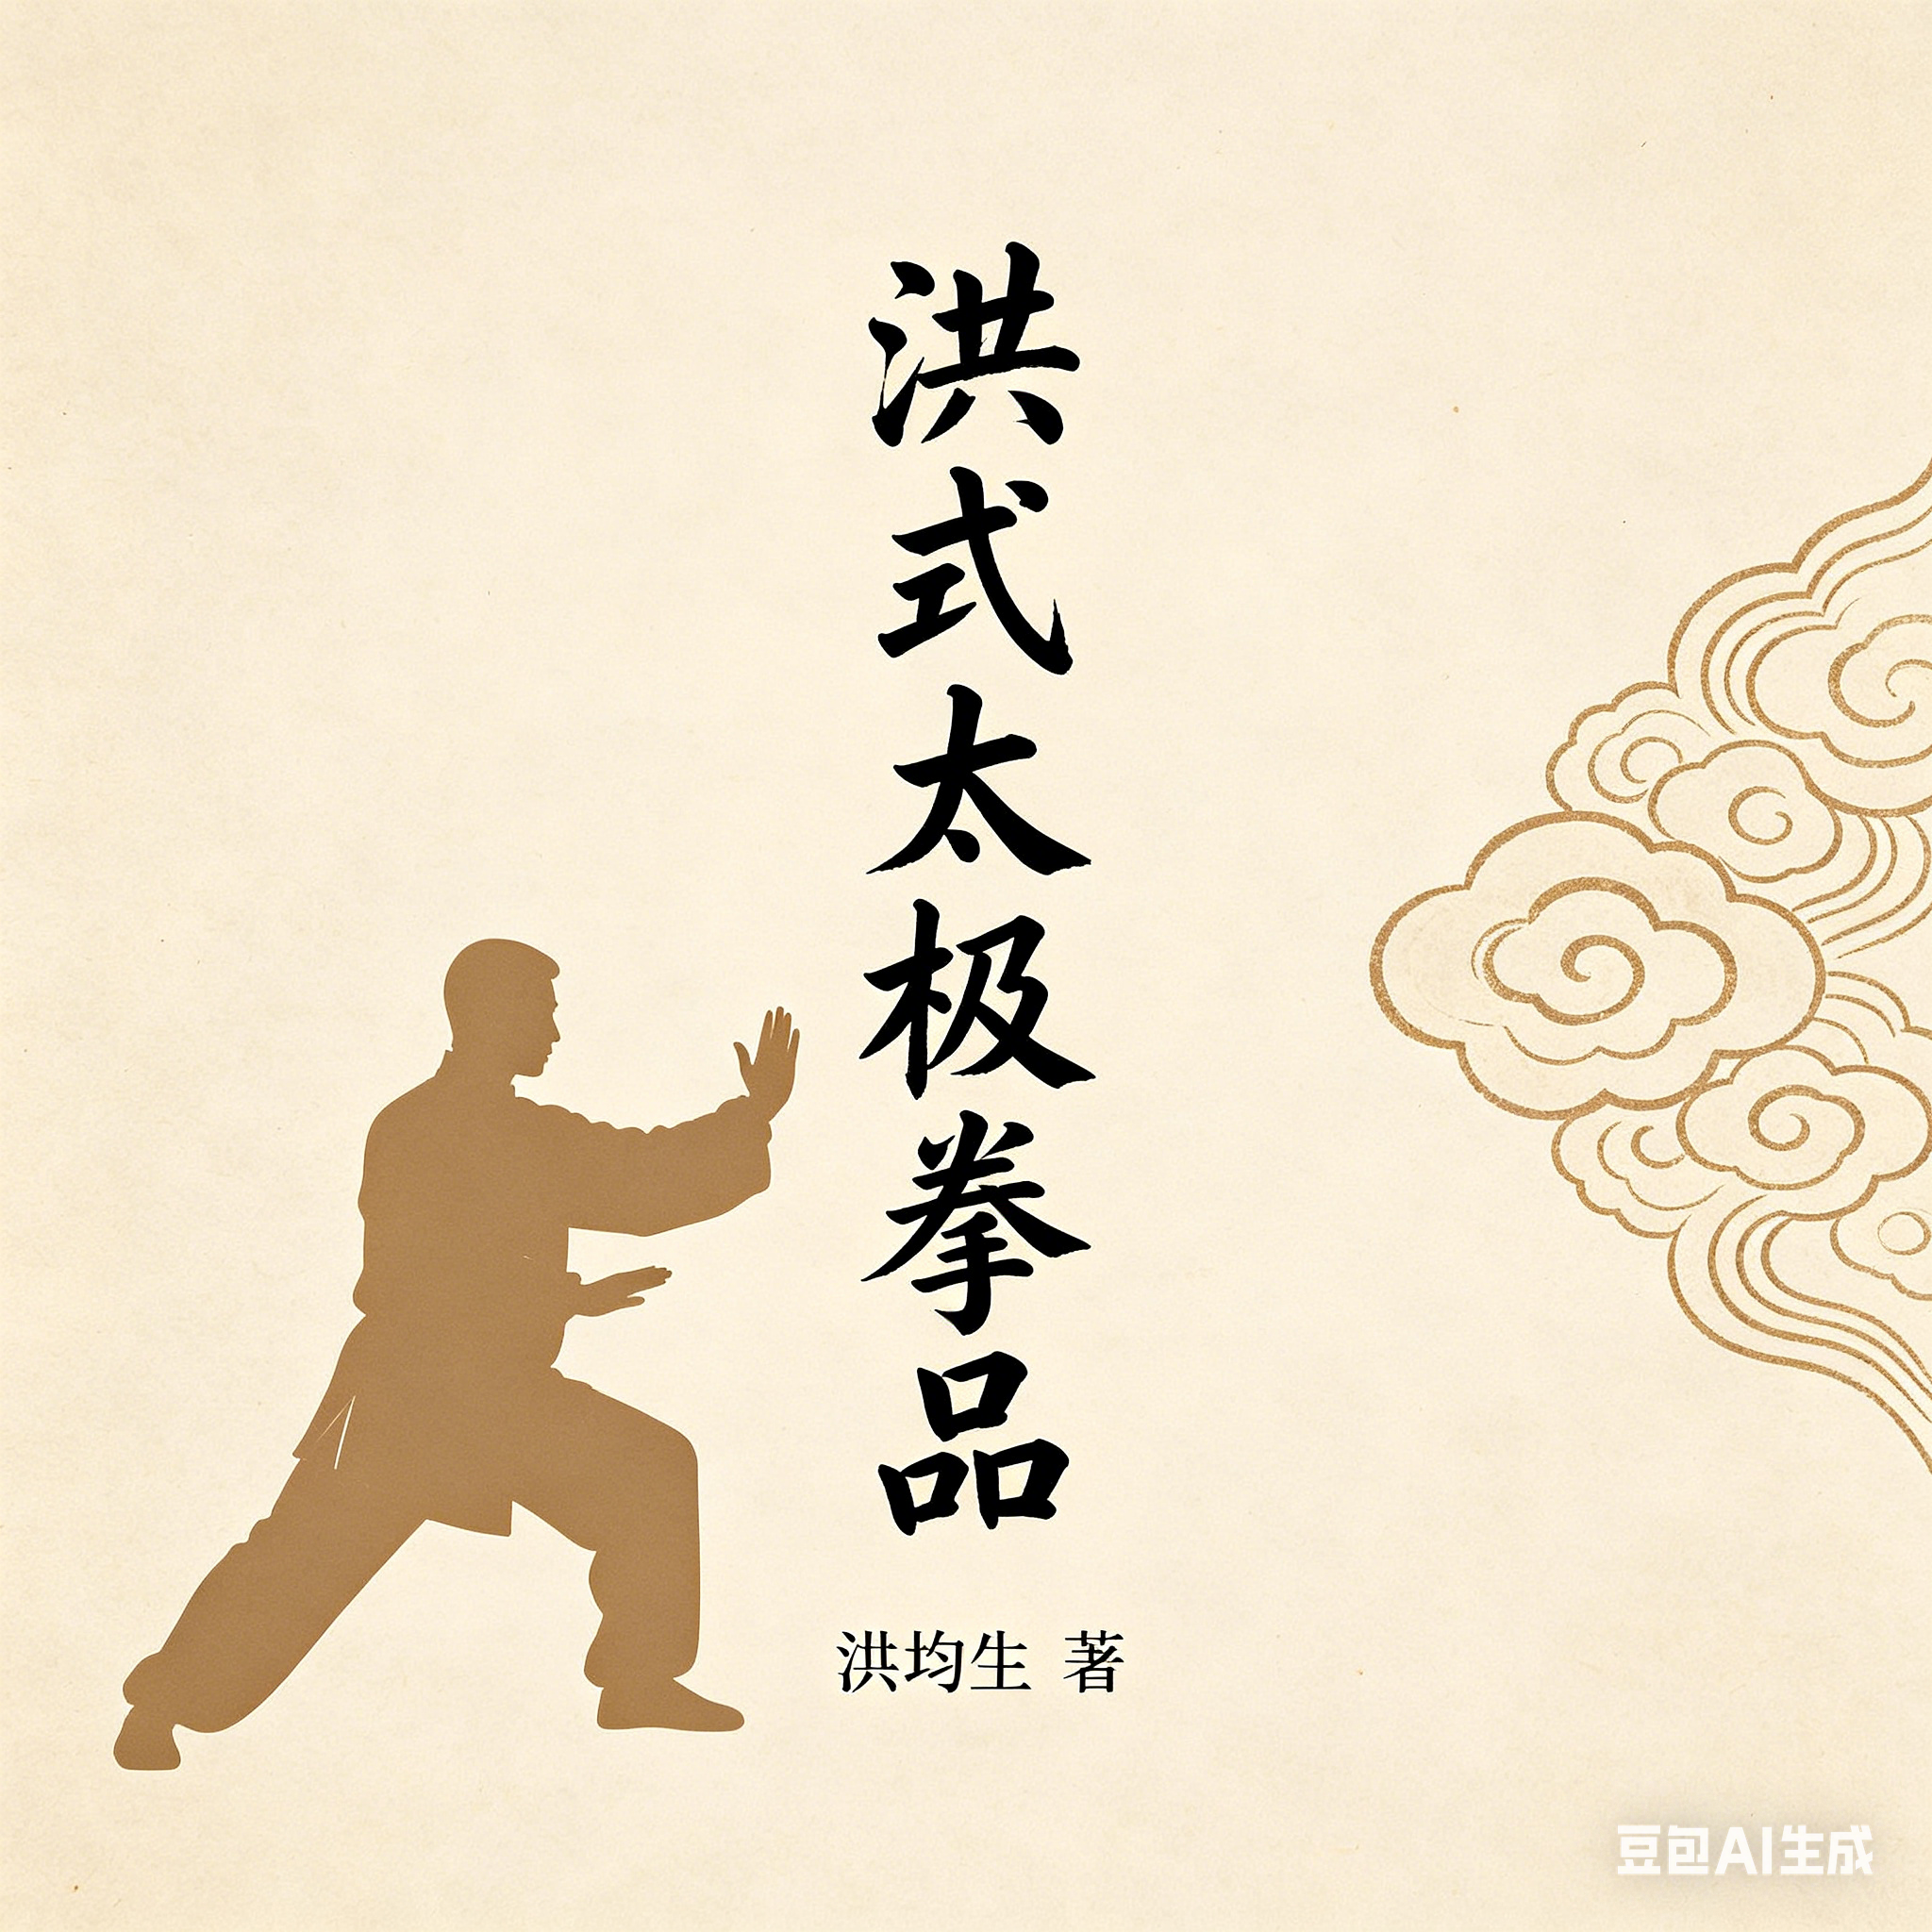 洪式太极拳品
洪均生 著
豆包AI生成